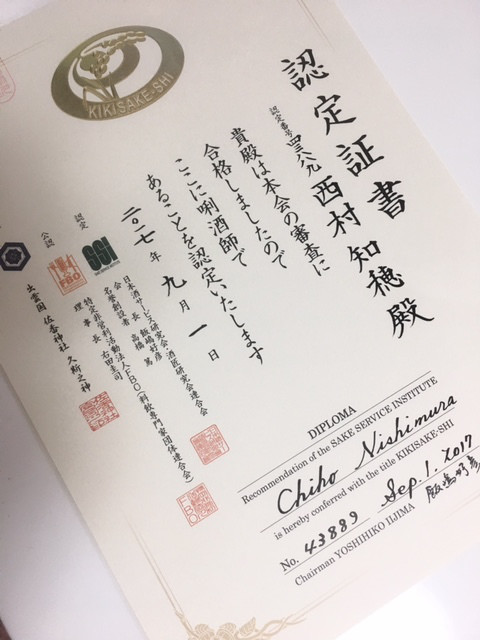 KIKISAKE-SHI
認定証書
認定番号 四三八八九
西村知穂殿
貴殿は本会の審査に
合格しましたので
ここに唎酒師で
あることを認定いたします
二〇一七年 九月 一日
認定
SSI
日本酒サービス研究会・酒匠研究会連合会
会長 飯嶋好彦
名誉創設者 高橋 篤
公認
FBO
特定非営利活動法人FBO(料飲専門家団体連合会)
理事長 右田圭司
FBO
出雲国 佐香神社 久斯之神
DIPLOMA
Recommendation of the SAKE SERVICE INSTITUTE
Chiho Nishimura
is hereby conferred with the title KIKISAKE-SHI
No. 43889 Sep. 1. 2017
Chairman YOSHIHIKO IIJIMA 飯嶋好彦